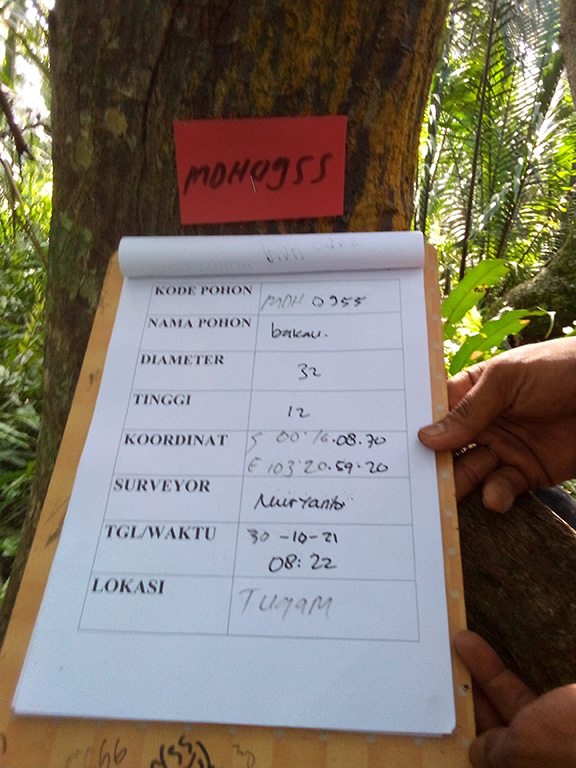 MDH0955
KODE POHON MDH 0955
NAMA POHON bakau.
DIAMETER 32
TINGGI 12
KOORDINAT S 00.16.08.70
E 103.20.59.20
SURVEYOR Nuryanto
TGL/WAKTU 30-10-21
08:22
LOKASI Tugam